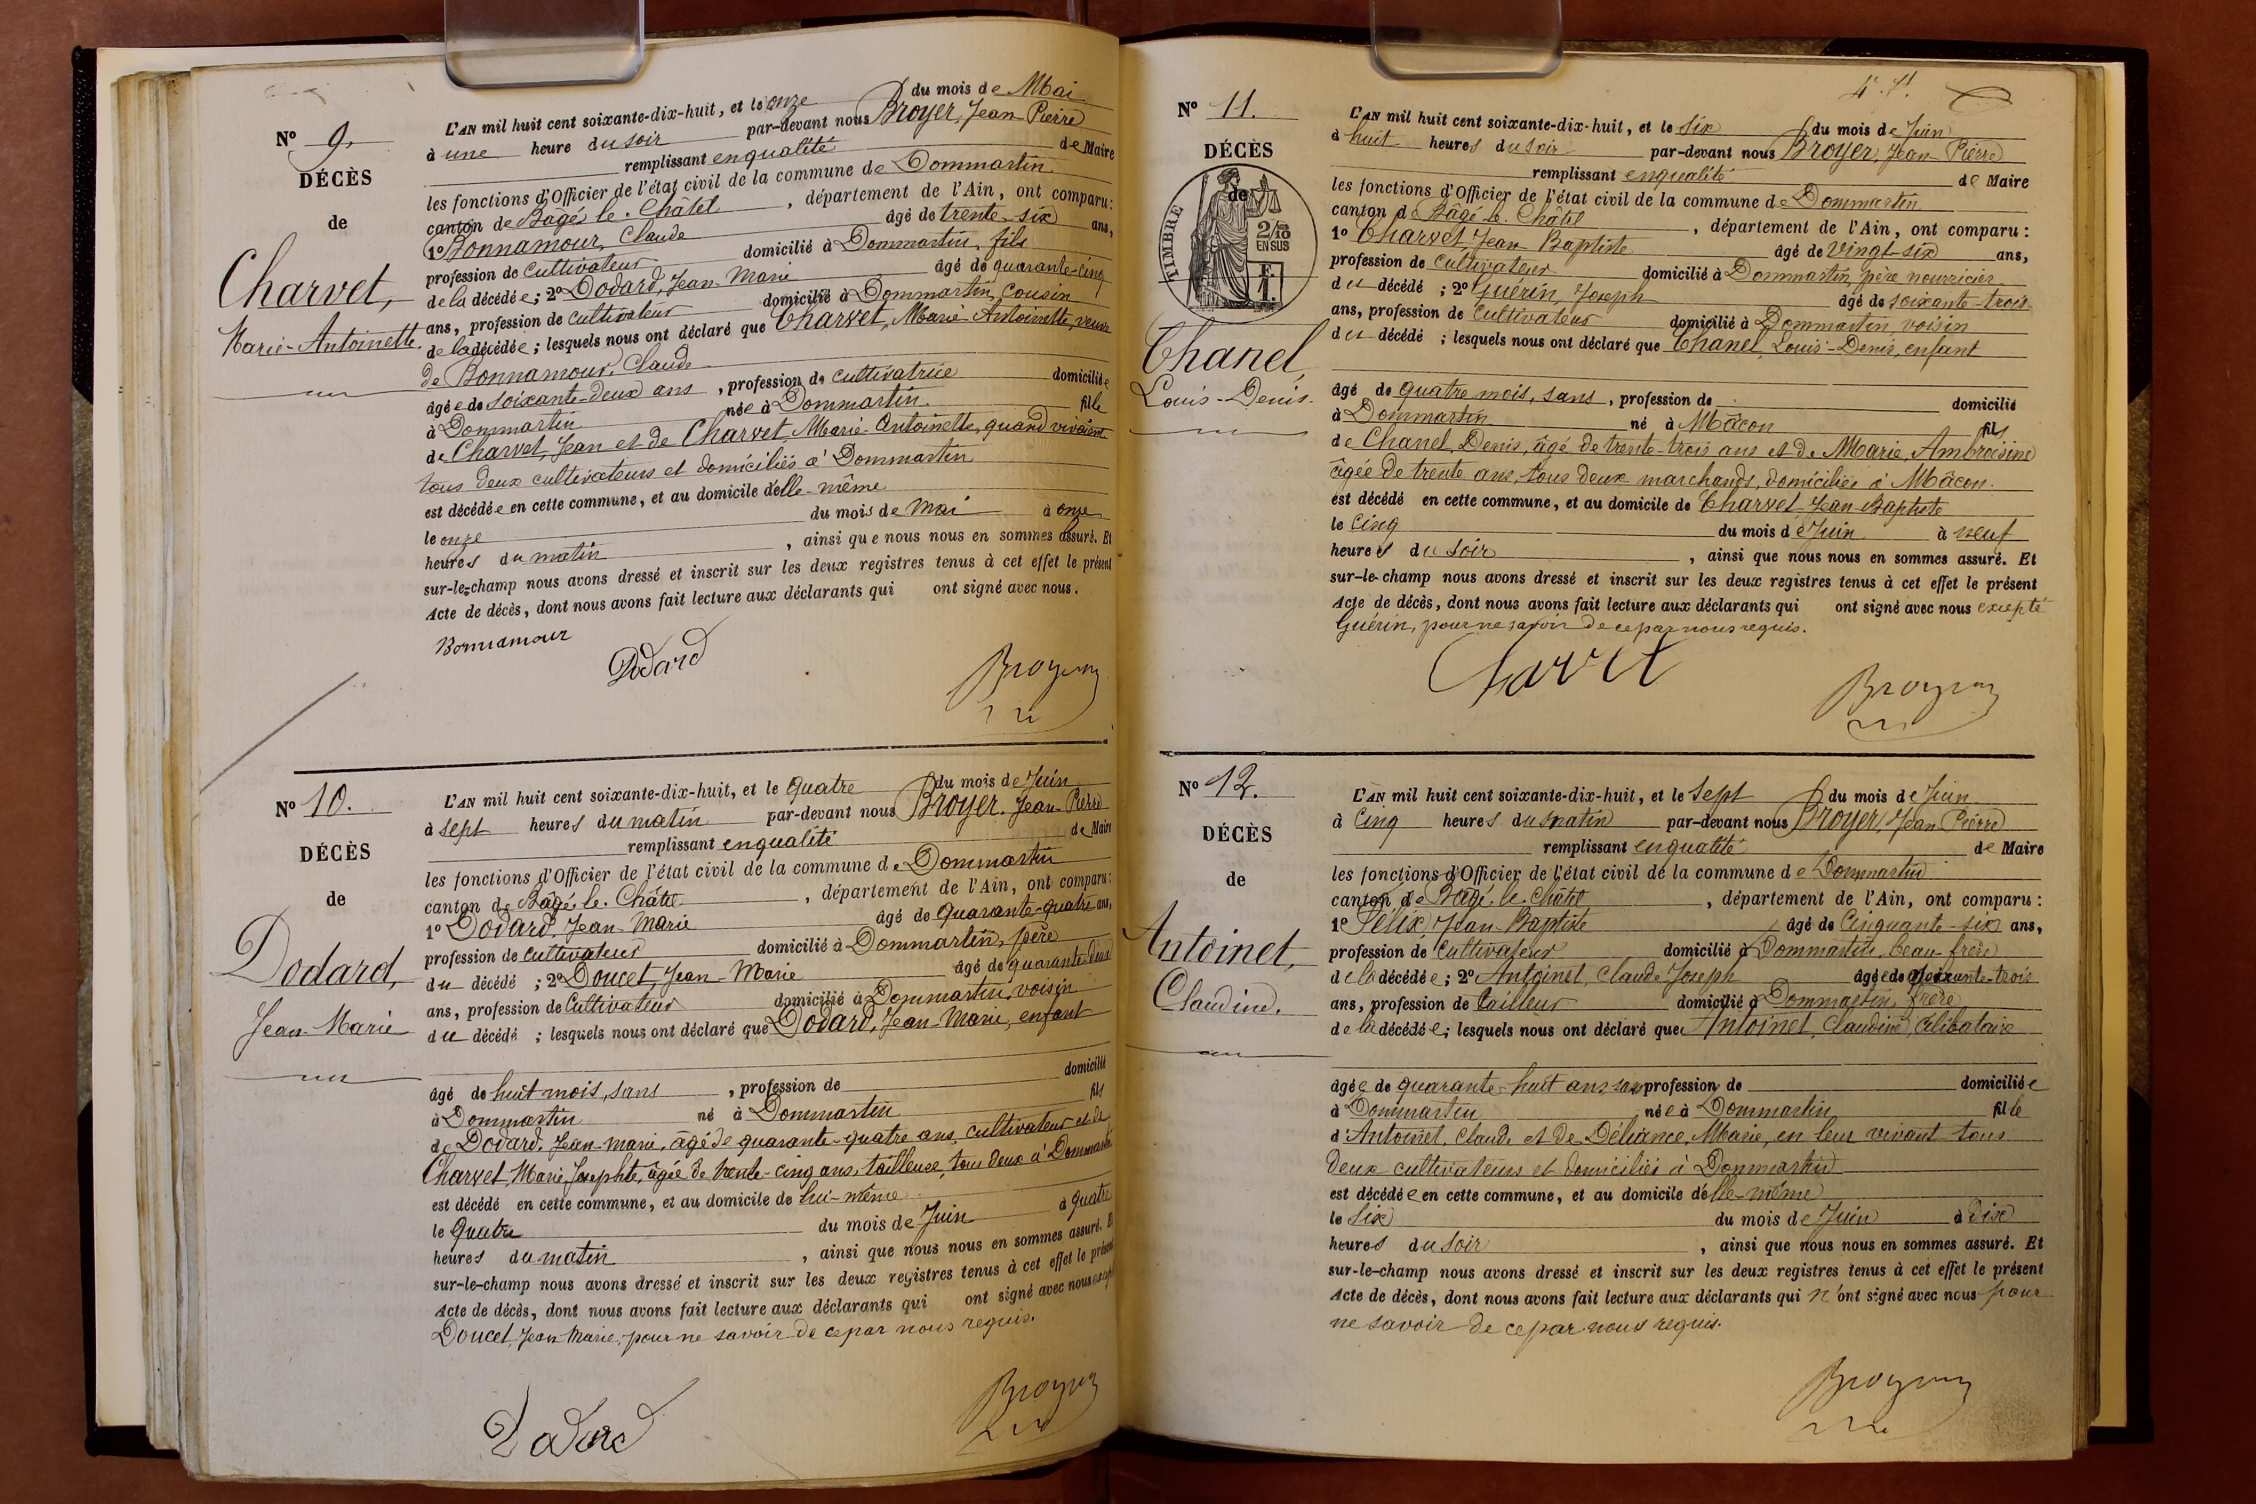 Nº 9.
DÉCÈS
de
Charvet,
Marie-Antoinette
L'AN mil huit cent soixante-dix-huit, et le onze du mois de Mai
à une heure du soir par-devant nous Broyer, Jean Pierre
remplissant en qualité de Maire
les fonctions d'Officier de l'état civil de la commune de Dommartin
canton de Bâgé-le-Châtel, département de l'Ain, ont comparu:
1º Bonnamour, Claude âgé de trente-six ans,
profession de cultivateur domicilié à Dommartin, fils
de la décédée; 2º Dodard, Jean-Marie âgé de quarante-cinq
ans, profession de cultivateur domicilié à Dommartin, cousin
de la décédée; lesquels nous ont déclaré que Charvet, Marie-Antoinette, veuve
de Bonnamour, Claude
âgée de soixante-deux ans, profession de cultivatrice domiciliée
à Dommartin née à Dommartin fille
de Charvet, Jean et de Charvet, Marie-Antoinette, quand vivaient
tous deux cultivateurs et domiciliés à Dommartin
est décédée en cette commune, et au domicile d'elle-même
le onze du mois de Mai à onze
heures du matin, ainsi que nous nous en sommes assuré. Et
sur-le-champ nous avons dressé et inscrit sur les deux registres tenus à cet effet le présent
Acte de décès, dont nous avons fait lecture aux déclarants qui ont signé avec nous.
Bonnamour
Dodard
Broyer
Nº 10.
DÉCÈS
de
Dodard,
Jean-Marie
L'AN mil huit cent soixante-dix-huit, et le quatre du mois de Juin
à sept heures du matin par-devant nous Broyer, Jean-Pierre
remplissant en qualité de Maire
les fonctions d'Officier de l'état civil de la commune de Dommartin
canton de Bâgé-le-Châtel, département de l'Ain, ont comparu:
1º Dodard, Jean-Marie âgé de quarante-quatre ans,
profession de cultivateur domicilié à Dommartin, père
du décédé; 2º Doucet, Jean-Marie âgé de quarante-deux
ans, profession de Cultivateur domicilié à Dommartin, voisin
du décédé; lesquels nous ont déclaré que Dodard, Jean-Marie, enfant
âgé de huit mois, sans, profession de domicilié
à Dommartin né à Dommartin fils
de Dodard, Jean-Marie, âgé de quarante-quatre ans, cultivateur et de
Charvet, Marie Josephte, âgée de trente-cinq ans, tailleuse, tous deux à Dommartin
est décédé en cette commune, et au domicile de lui-même
le quatre du mois de Juin à quatre
heures du matin, ainsi que nous nous en sommes assuré. Et
sur-le-champ nous avons dressé et inscrit sur les deux registres tenus à cet effet le présent
Acte de décès, dont nous avons fait lecture aux déclarants qui ont signé avec nous excepté
Doucet, Jean-Marie, pour ne savoir de ce par nous requis.
Dodard
Broyer
Nº 11.
DÉCÈS
de
TIMBRE
2/10
EN SUS
Chanel,
Louis-Denis.
L'AN mil huit cent soixante-dix-huit, et le six du mois de Juin
à huit heures du soir par-devant nous Broyer, Jean-Pierre
remplissant en qualité de Maire
les fonctions d'Officier de l'état civil de la commune de Dommartin
canton de Bâgé-le-Châtel, département de l'Ain, ont comparu:
1º Charvet, Jean Baptiste âgé de vingt-six ans,
profession de cultivateur domicilié à Dommartin, père nourricier
du décédé; 2º Guérin, Joseph âgé de soixante-trois
ans, profession de cultivateur domicilié à Dommartin, voisin
du décédé; lesquels nous ont déclaré que Chanel, Louis-Denis, enfant
âgé de quatre mois, sans, profession de domicilié
à Dommartin né à Mâcon fils
de Chanel, Denis, âgé de trente-trois ans et de Marie, Ambroisine
âgée de trente ans, tous deux marchands, domiciliés à Mâcon.
est décédé en cette commune, et au domicile de Charvet Jean-Baptiste
le cinq du mois de Juin à neuf
heures du soir, ainsi que nous nous en sommes assuré. Et
sur-le-champ nous avons dressé et inscrit sur les deux registres tenus à cet effet le présent
Acte de décès, dont nous avons fait lecture aux déclarants qui ont signé avec nous excepté
Guérin, pour ne savoir de ce par nous requis.
Charvet
Broyer
Nº 12.
DÉCÈS
de
Antoinet,
Claudine.
L'AN mil huit cent soixante-dix-huit, et le sept du mois de Juin
à cinq heures du matin par-devant nous Broyer, Jean Pierre
remplissant en qualité de Maire
les fonctions d'Officier de l'état civil de la commune de Dommartin
canton de Bâgé-le-Châtel, département de l'Ain, ont comparu:
1º Félix, Jean-Baptiste âgé de cinquante-six ans,
profession de Cultivateur domicilié à Dommartin, beau-frère
de la décédée; 2º Antoinet, Claude Joseph âgé de soixante-trois
ans, profession de tailleur domicilié à Dommartin, frère
de la décédée; lesquels nous ont déclaré que Antoinet, Claudine, célibataire
âgée de quarante-huit ans, sans profession de domiciliée
à Dommartin née à Dommartin fille
d'Antoinet, Claude et de Marie, en leur vivant tous
deux cultivateurs et domiciliés à Dommartin
est décédée en cette commune, et au domicile d'elle-même
le six du mois de Juin à dix
heures du soir, ainsi que nous nous en sommes assuré. Et
sur-le-champ nous avons dressé et inscrit sur les deux registres tenus à cet effet le présent
Acte de décès, dont nous avons fait lecture aux déclarants qui n'ont signé avec nous pour
ne savoir de ce par nous requis.
Broyer